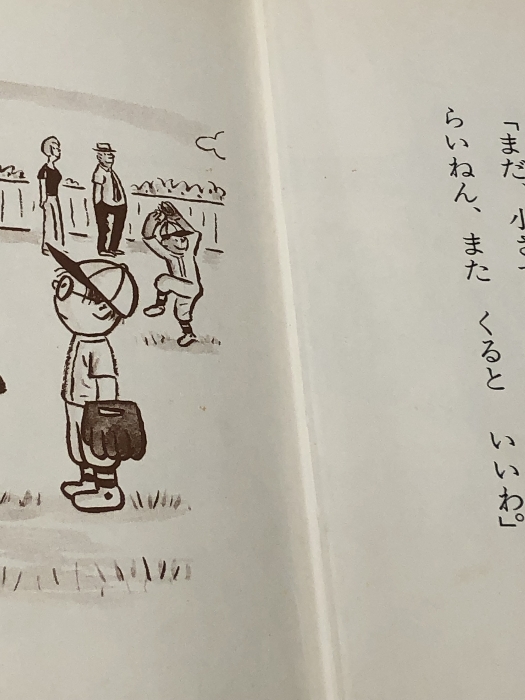 「まだ 小さ
らいねん、また くると いいわ」。